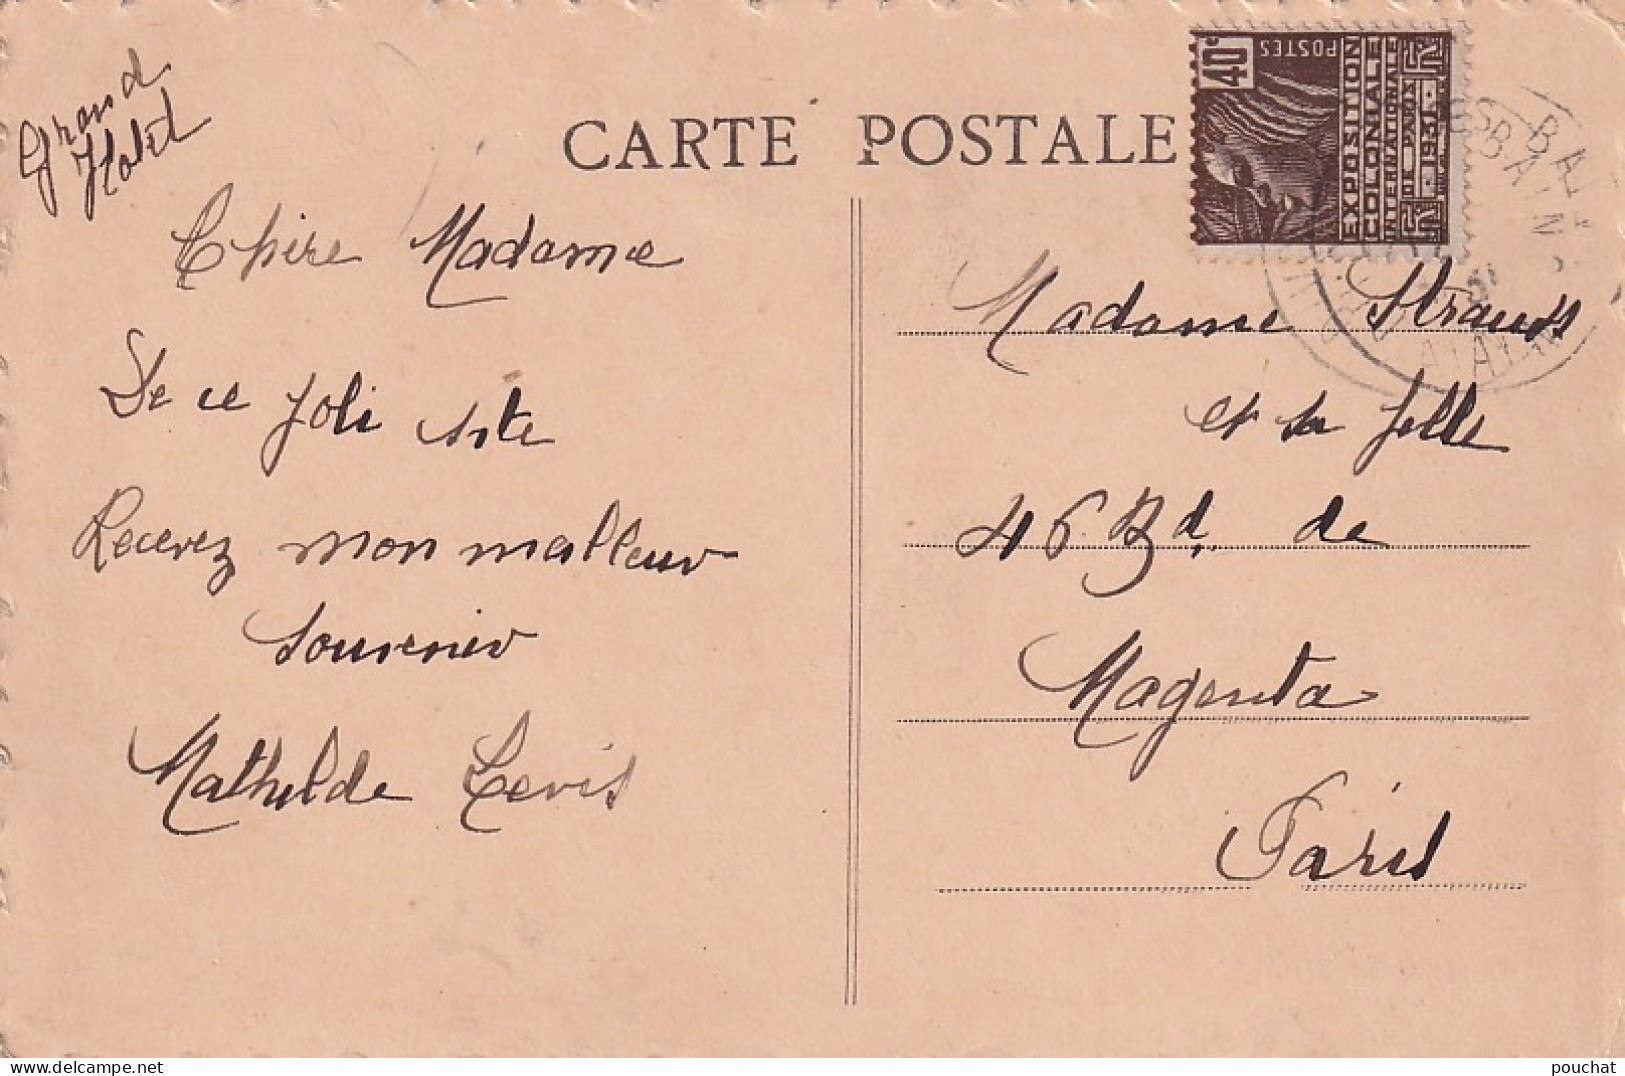 Grand
Hotel
CARTE POSTALE
40c
POSTES
EXPOSITION
COLONIALE
INTERNATIONALE
DE PARIS
1931
Chère Madame
De ce joli site
Recevez mon meilleur
souvenir
Mathilde Levis
Madame Strauss
et sa fille
46 Bd. de
Magenta
Paris
pouchat